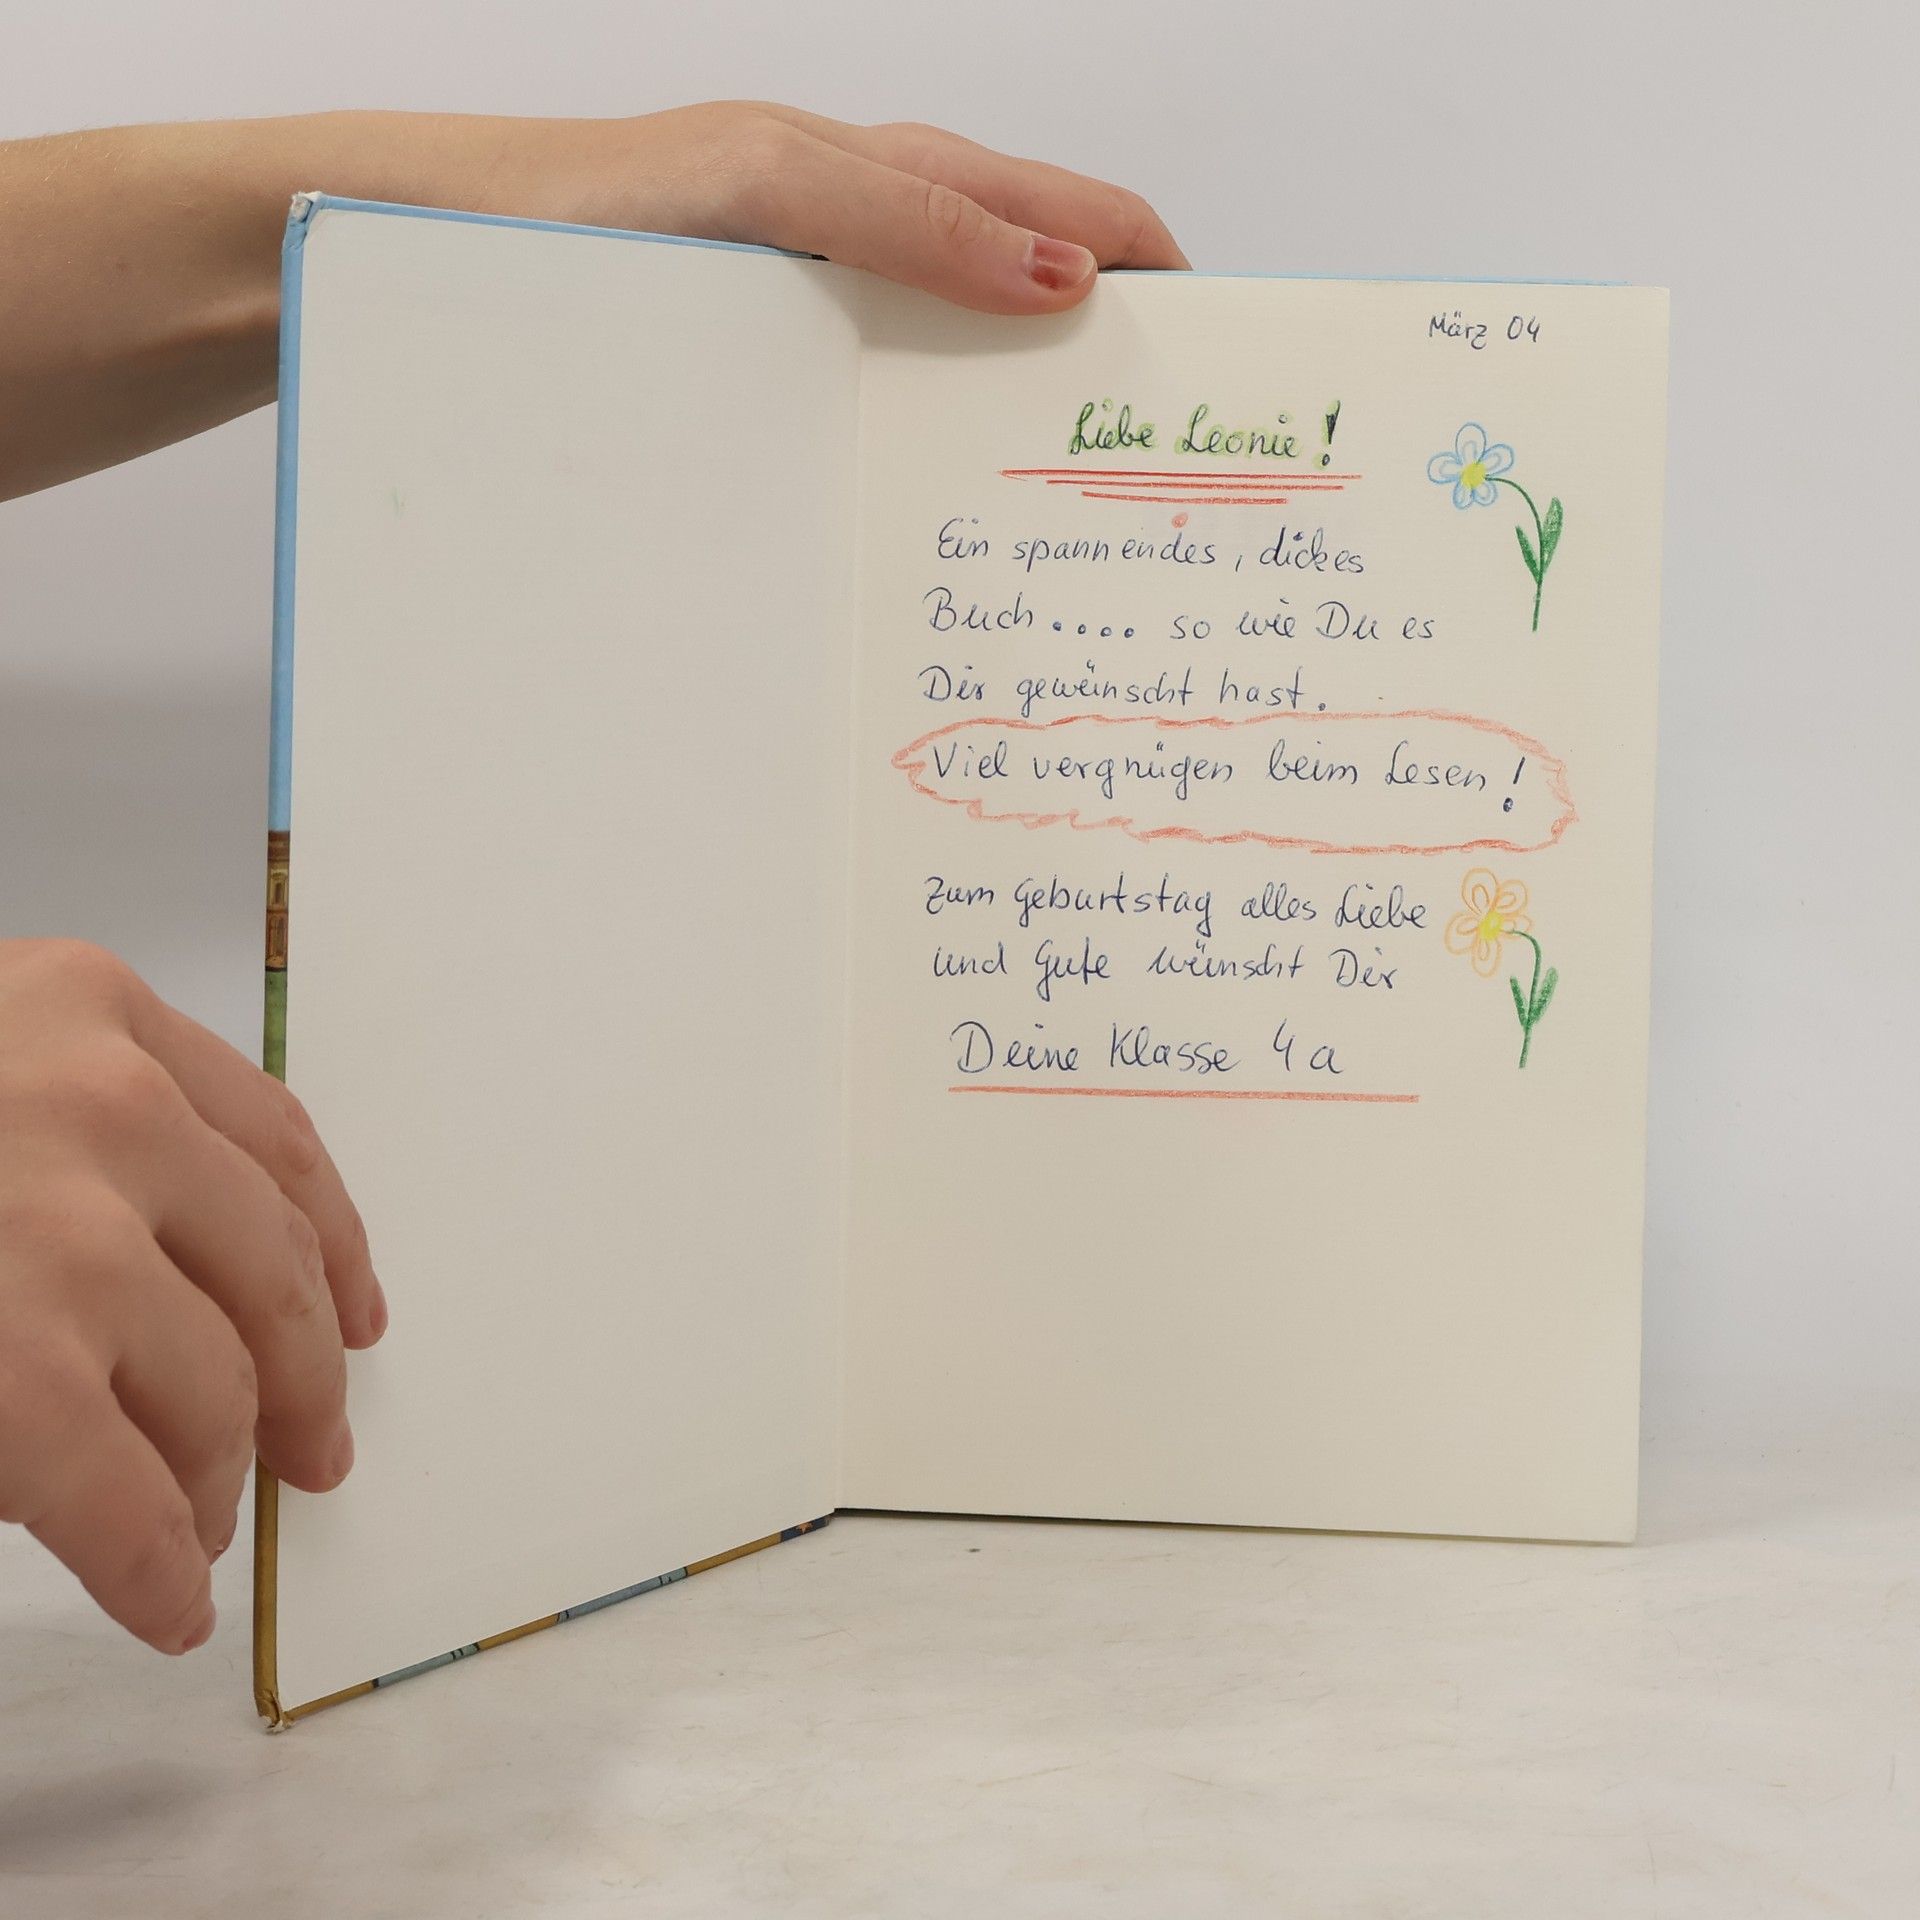 März 04
Liebe Leonie!
Ein spannendes, dickes
Buch.... so wie Du es
Dir gewünscht hast.
Viel vergnügen beim Lesen!
Zum Geburtstag alles Liebe
und Gute wünscht Dir
Deine Klasse 4a